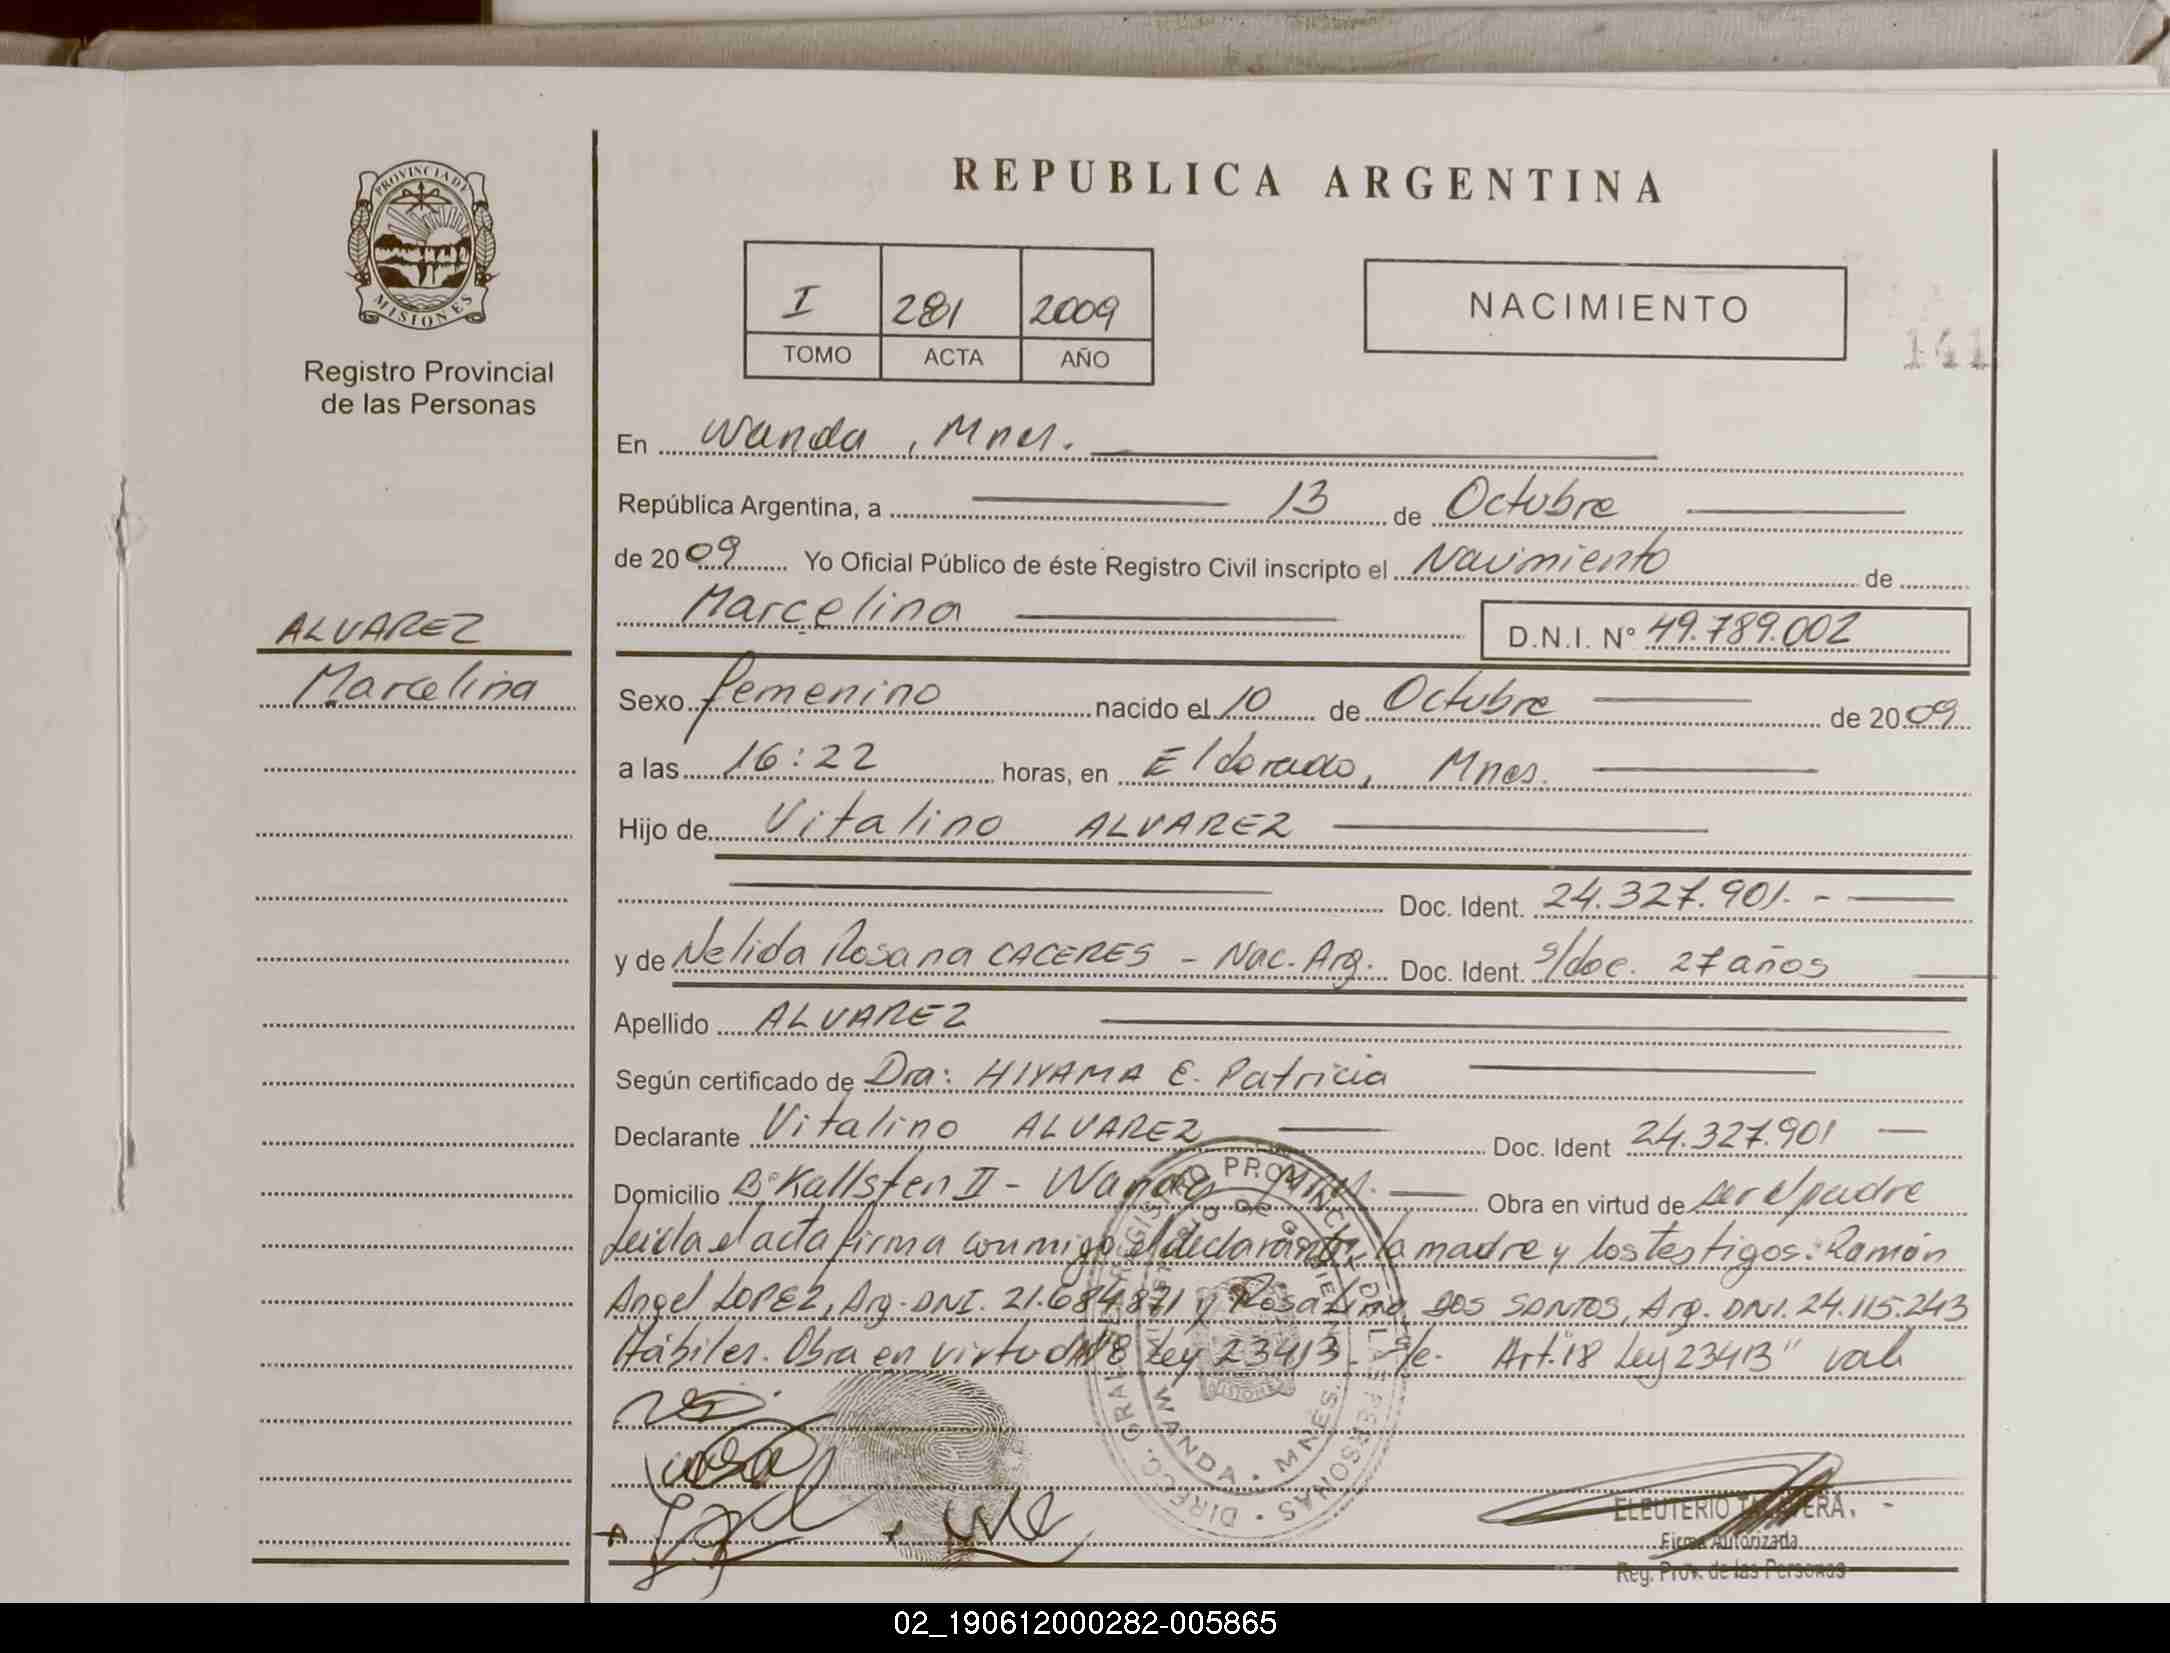 REPUBLICA ARGENTINA
PROVINCIA DE
MISIONES
Registro Provincial
de las Personas
I 281 2009
TOMO ACTA AÑO
NACIMIENTO
141
En Wanda, Mnes.
República Argentina, a 13 de Octubre
de 2009 Yo Oficial Público de éste Registro Civil inscripto el Nacimiento de
Marcelina D.N.I. N° 49.789.002
ALVAREZ
Marcelina
Sexo femenino nacido el 10 de Octubre de 2009
a las 16:22 horas, en Eldorado, Mnes.
Hijo de Vitalino ALVAREZ
Doc. Ident. 24.327.901.-
y de Nelida Rosana CACERES - Nac. Arg. Doc. Ident. s/doc. 27 años
Apellido ALVAREZ
Según certificado de Dra: HIYAMA E. Patricia
Declarante Vitalino ALVAREZ Doc. Ident 24.327.901
Domicilio B° Kallsten II - Wanda Mnes. Obra en virtud de ser el padre
Leida el acta firma conmigo el declarante, la madre y los testigos: Ramón
Angel LOPEZ, Arg. DNI. 21.684.871 y Rosalino DOS SANTOS, Arg. DNI. 24.115.243
Hábiles. Obra en virtud Ley 23413. s/e. Art. 18 Ley 23413" vale
DIRECC. GRAL. DEL REGISTRO PROVINCIAL DE LAS PERSONAS
MINISTERIO DE GOBIERNO
WANDA - MNES.
ELEUTERIO TALAVERA.
Firma Autorizada
Reg. Prov. de las Personas
02_190612000282-005865